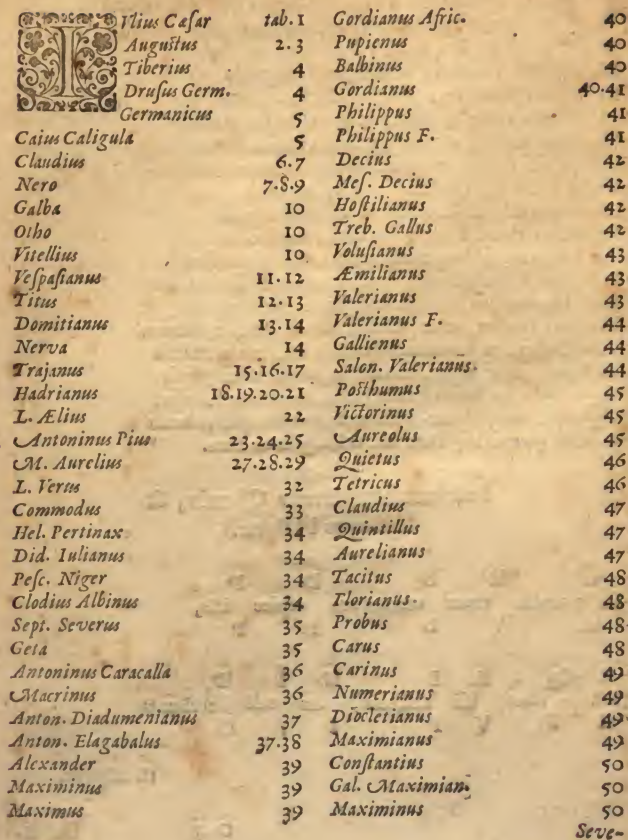 IVlius Cæsar tab. 1
Augustus 2. 3
Tiberius 4
Drusus Germ. 4
Germanicus 5
Caius Caligula 5
Claudius 6.7
Nero 7.8.9
Galba 10
Otho 10
Vitellius 10
Vespasianus 11.12
Titus 12.13
Domitianus 13.14
Nerva 14
Trajanus 15.16.17
Hadrianus 18.19.20.21
L. Ælius 22
Antoninus Pius 23.24.25
M. Aurelius 27.28.29
L. Verus 32
Commodus 33
Hel. Pertinax 34
Did. Iulianus 34
Pesc. Niger 34
Clodius Albinus 34
Sept. Severus 35
Geta 35
Antoninus Caracalla 36
Macrinus 36
Anton. Diadumenianus 37
Anton. Elagabalus 37.38
Alexander 39
Maximinus 39
Maximus 39
Gordianus Afric. 40
Pupienus 40
Balbinus 40
Gordianus 40.41
Philippus 41
Philippus F. 41
Decius 42
Mes. Decius 42
Hostilianus 42
Treb. Gallus 42
Volusianus 43
Æmilianus 43
Valerianus 43
Valerianus F. 44
Gallienus 44
Salon. Valerianus. 44
Posthumus 45
Victorinus 45
Aureolus 45
Quietus 46
Tetricus 46
Claudius 47
Quintillus 47
Aurelianus 47
Tacitus 48
Florianus. 48
Probus 48
Carus 48
Carinus 49
Numerianus 49
Diocletianus 49
Maximianus 49
Constantius 50
Gal. Maximian. 50
Maximinus 50
Seve-